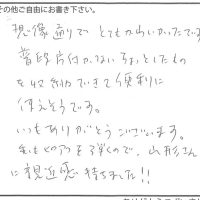 その他ご自由にお書き下さい。
想像通りで とてもかわいかったです。
普段片付かないちょっとしたもの
を収納できて便利に
使えそうです。
いつもありがとうございます。
私もピアノを弾くので、山形さん
に親近感 持ちました!!